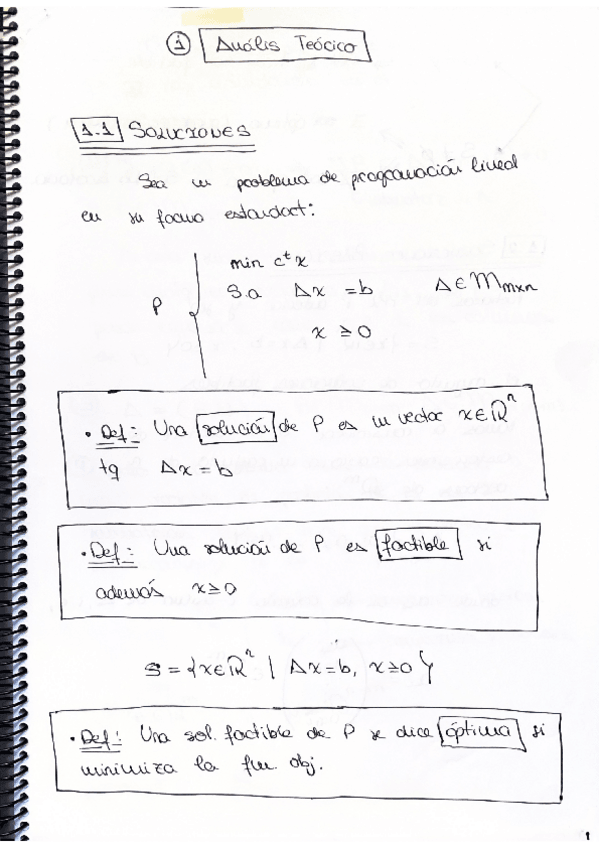 ① Anális Teórico
1.1 SOLUCIONES
Sea un problema de programación lineal
en su forma estandart:
P { min cᵗx
s.a Ax = b A ∈ Mmxn
x ≥ 0
• Def: Una solución de P es un vector x∈ℝⁿ
tq Ax = b
• Def: Una solución de P es factible si
además x≥0
S = {x∈ℝⁿ | Ax=b, x≥0}
• Def: Una sol. factible de P se dice óptima si
minimiza la fun. obj.
1